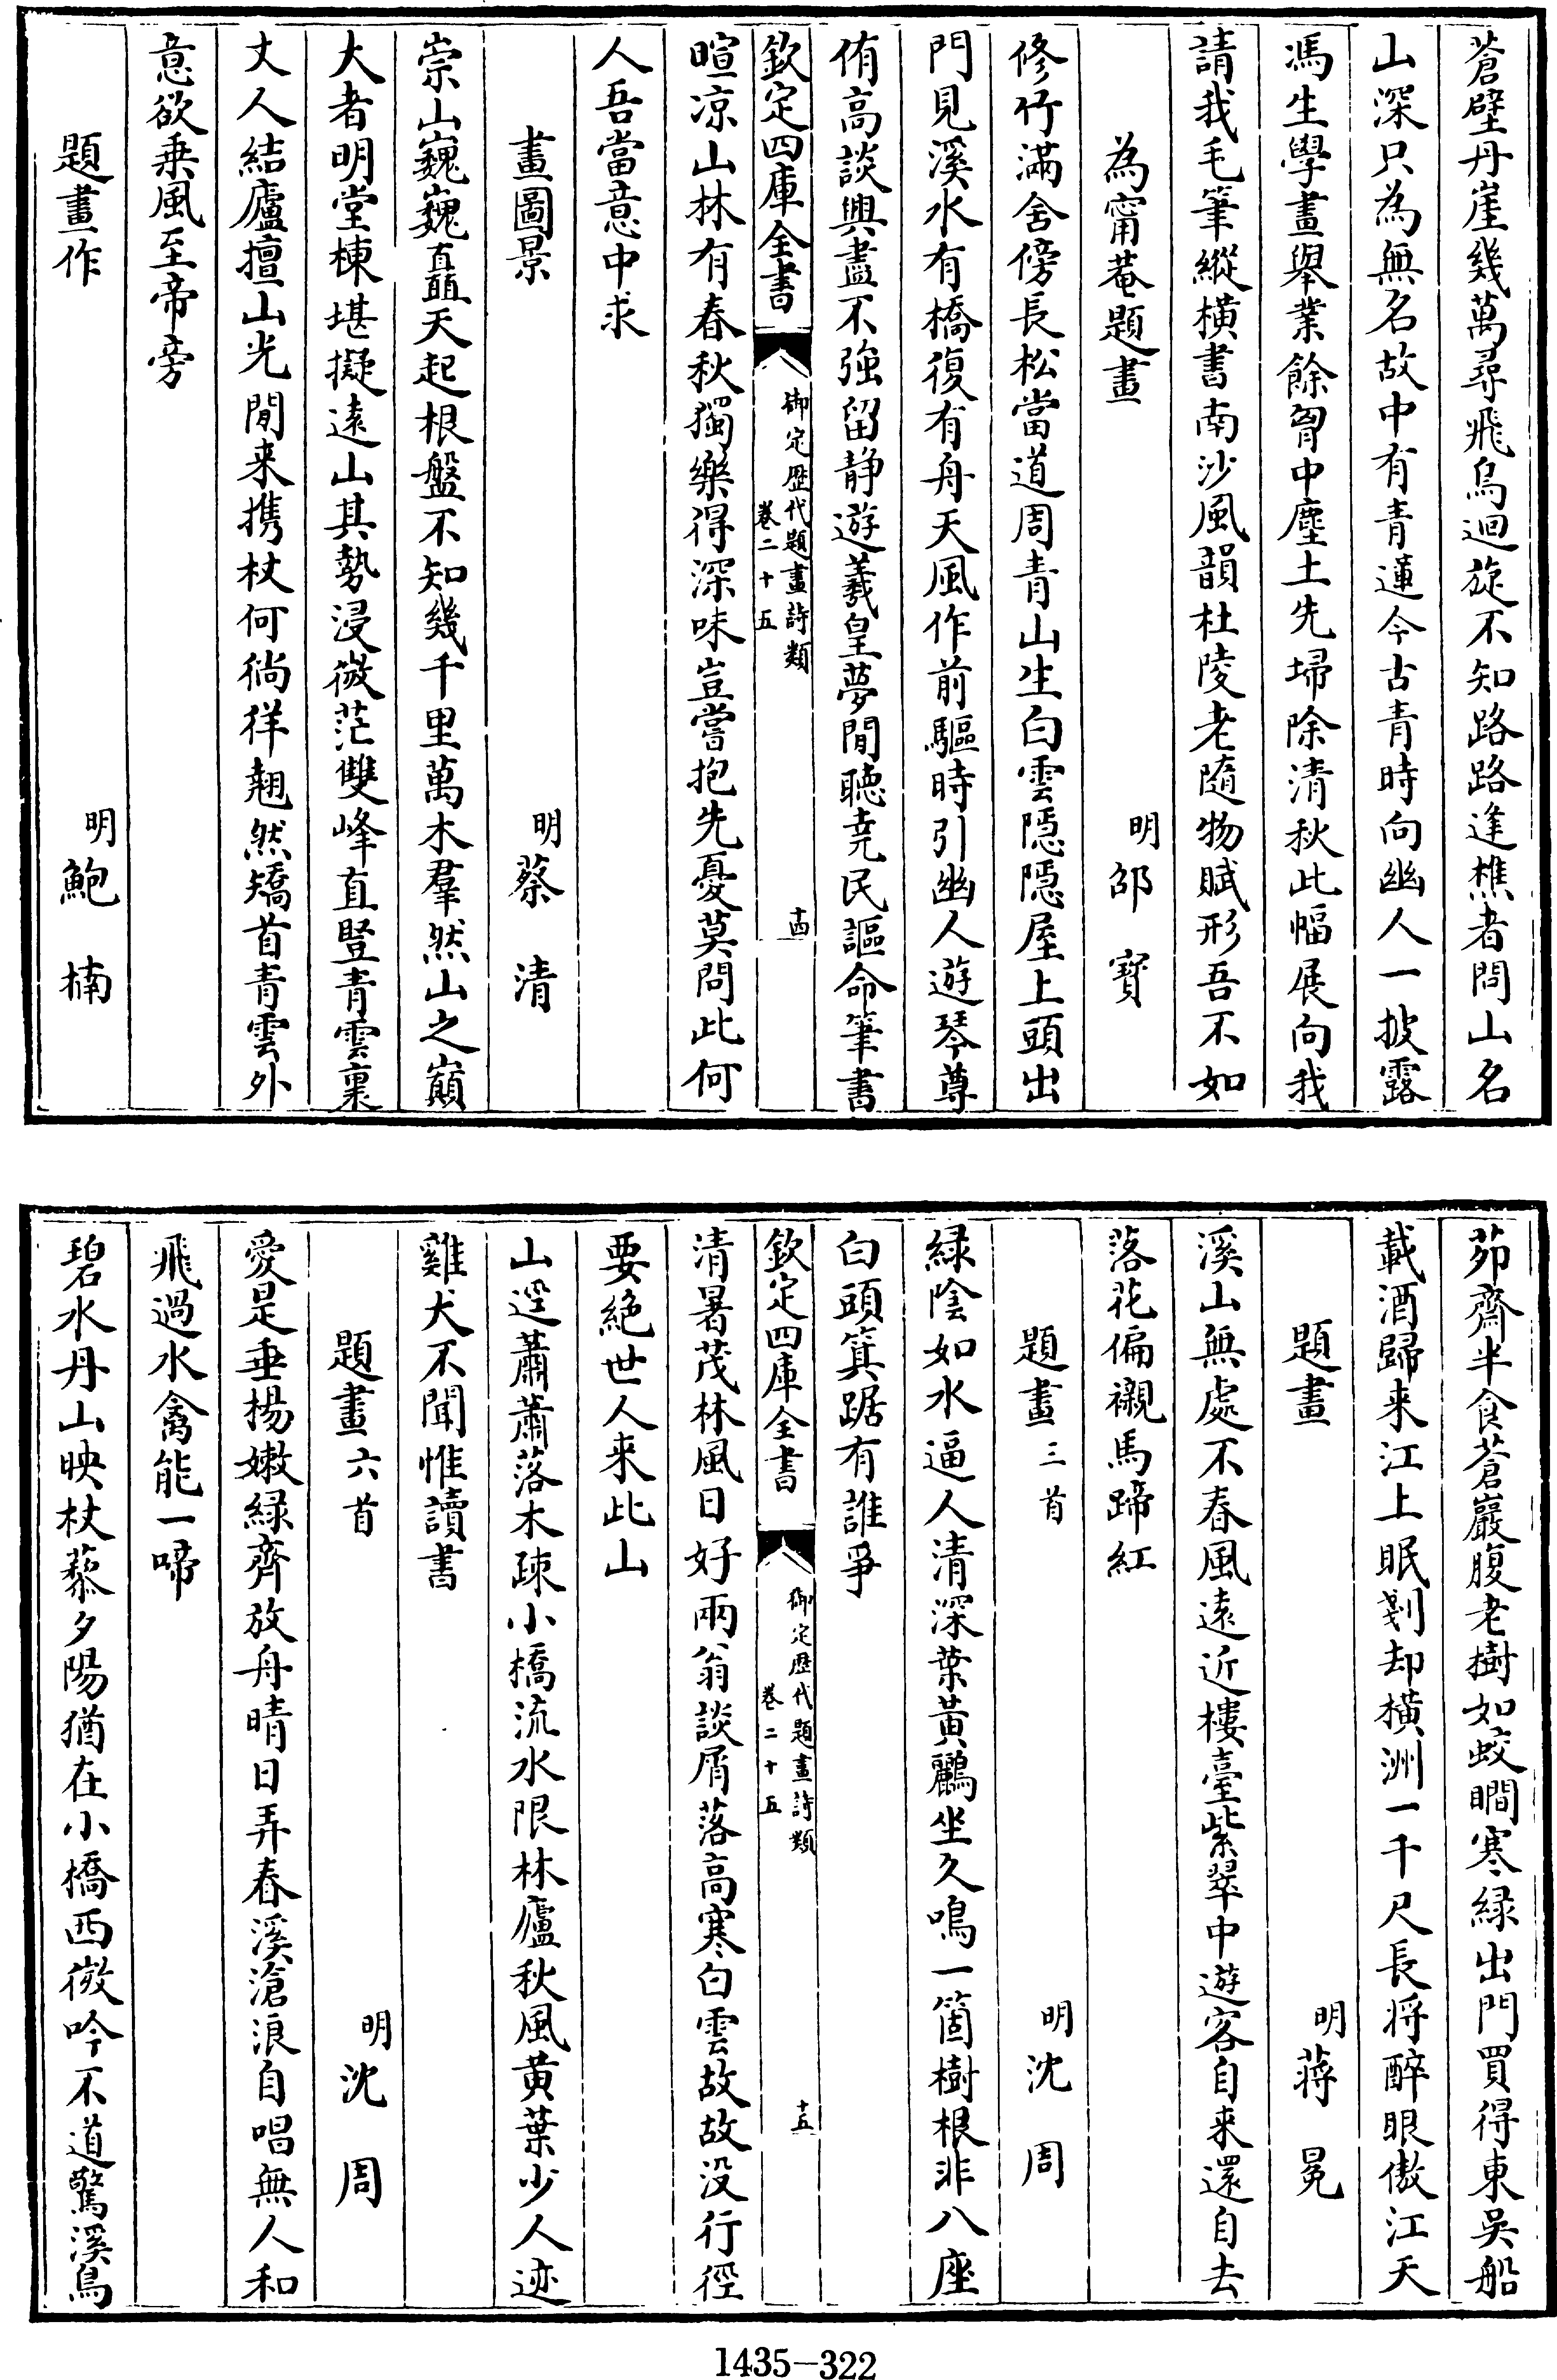 蒼壁丹崖幾萬尋飛鳥迴旋不知路路逢樵者問山名
山深只為無名故中有青蓮今古青時向幽人一披露
馮生學畫舉業餘胷中塵土先埽除清秋此幅展向我
請我毛筆縱橫書南沙風韻杜陵老隨物賦形吾不如
為甯菴題畫 明 邵寳
修竹滿舍傍長松當道周青山生白雲隱隱屋上頭出
門見溪水有橋復有舟天風作前驅時引幽人遊琴尊
侑高談興盡不強留静遊羲皇夢閒聽堯民謳命筆書
欽定四庫全書 御定歴代題畫詩類 卷二十五 十四
暄凉山林有春秋獨樂得深味豈嘗抱先憂莫問此何
人吾當意中求
畫圖景 明 蔡清
崇山巍巍矗天起根盤不知幾千里萬木羣然山之巔
大者明堂棟堪擬遠山其勢浸微茫雙峰直竪青雲裏
丈人結廬擅山光閒来攜杖何徜徉翹然矯首青雲外
意欲乗風至帝旁
題畫作 明 鮑楠
茆齋半食蒼巖腹老樹如蛟瞷寒緑出門買得東吳船
載酒歸来江上眠剗却横洲一千尺長将醉眼傲江天
題畫 明 蔣冕
溪山無處不春風遠近樓臺紫翠中遊客自来還自去
落花偏襯馬蹄紅
題畫三首 明 沈周
緑陰如水逼人清深葉黃鸝坐久鳴一箇樹根非八座
白頭箕踞有誰爭
欽定四庫全書 御定歴代題畫詩類 卷二十五 十五
清暑茂林風日好兩翁談屑落高寒白雲故故没行徑
要絶世人来此山
山逕蕭蕭落木疎小橋流水限林廬秋風黄葉少人迹
雞犬不聞惟讀書
題畫六首 明 沈周
愛是垂楊嫩緑齊放舟晴日弄春溪滄浪自唱無人和
飛過水禽能一啼
碧水丹山映杖藜夕陽猶在小橋西微吟不道驚溪鳥
1435-322